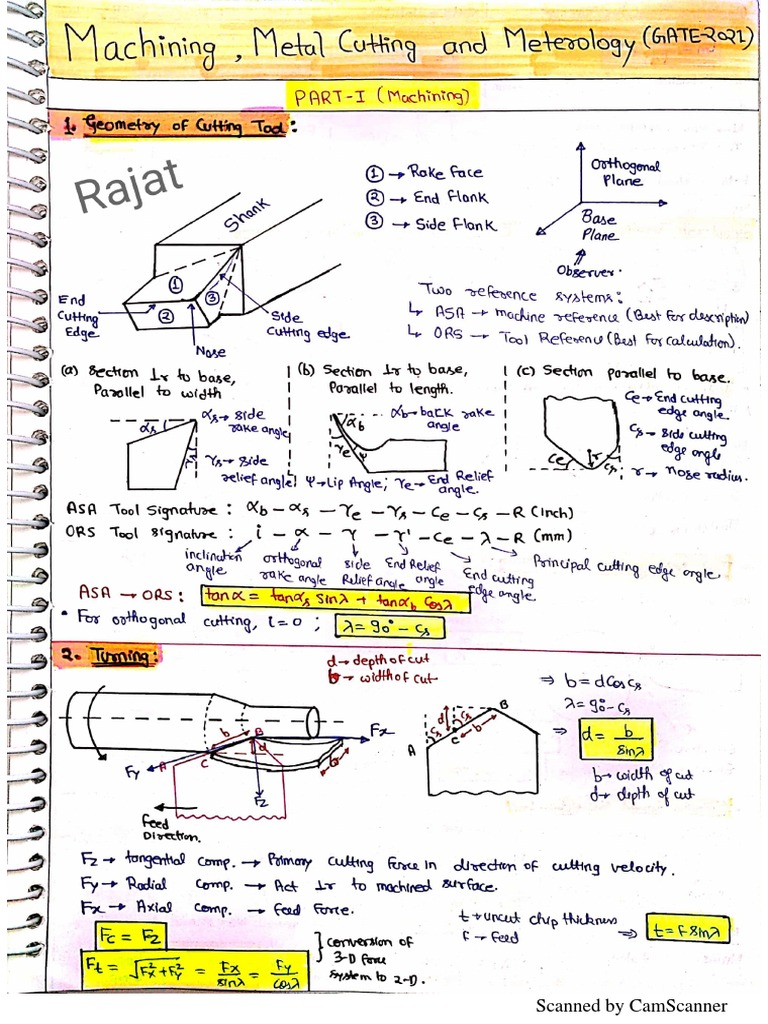 Machining, Metal Cutting and Meterology (GATE-2021)
PART-I (Machining)
1. Geometry of Cutting Tool:
Rajat
Shank
① → Rake Face
② → End Flank
③ → Side Flank
Orthogonal
Plane
Base
Plane
Observer.
①
②
③
End
Cutting
Edge
Nose
Side
Cutting edge
Two reference systems:
↳ ASA → machine reference (Best for description)
↳ ORS → Tool Reference (Best for calculation).
(a) Section ⊥r to base,
Parallel to width
αs
γs
αs → side
rake angle
γs → side
relief angle
(b) Section ⊥r to base,
Parallel to length.
αb
γe
ψ
αb → back rake
angle
ψ → Lip Angle; γe → End Relief
angle.
(c) Section parallel to base.
Ce
r
Cs
Ce → End cutting
edge angle.
Cs → side cutting
edge angle
r → Nose radius.
ASA Tool Signature : αb – αs – γe – γs – Ce – Cs – R (Inch)
ORS Tool Signature : i – α – γ – γ' – Ce – λ – R (mm)
inclination
angle
orthogonal
rake angle
side
Relief angle
End Relief
angle
End cutting
edge angle
Principal cutting edge angle
ASA → ORS : tanα = tanαs sinλ + tanαb cosλ
• For orthogonal cutting, i=0 ; λ = 90° – Cs
2. Turning:
d → depth of cut
b → width of cut
Fx
Fy
Fz
A
B
C
b
d
Feed
Direction.
A
B
C
d
b
Cs
Cs
⇒ b = dcosCs
λ = 90° – Cs
⇒ d = b/sinλ
b → width of cut
d → depth of cut
Fz → tangential comp. → Primary cutting force in direction of cutting velocity.
Fy → Radial comp. → Act ⊥r to machined surface.
Fx → Axial comp. → feed force.
Fc = Fz
Ft = √Fx²+Fy² = Fx/sinλ = Fy/cosλ
} conversion of
3-D force
system to 2-D.
t → uncut chip thickness
f → feed
⇒ t = f sinλ
Scanned by CamScanner